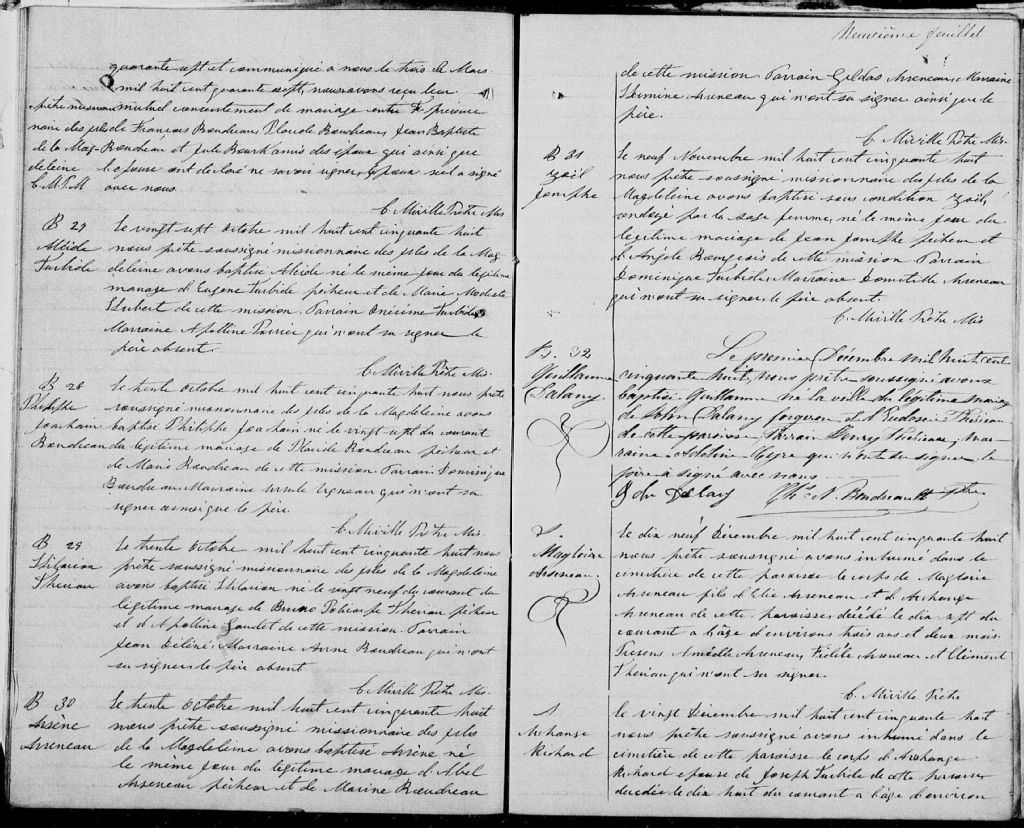 quarante sept et communiqué a nous le trois de Mars
mil huit cent quarante sept, nous avons reçu leur
mutuel consentement de mariage entre
prêtre missionnaire des îles de la Magdeleine C.M.I.M
de François Boudreau, Placide Boudreau, Jean Baptiste
Boudreau et Jule Bourk amis des époux qui ainsi que
l'épouse ont déclaré ne savoir signer, l'époux seul a signé
avec nous.
C. Miville Prêtre Mis
B 27
Alcide
Turbide
Le vingt sept Octobre mil huit cent cinquante huit
nous prêtre soussigné missionnaire des îles de la Mag
deleine avons baptisé Alcide né le même jour du légitime
mariage d'Eugène Turbide pêcheur et de Marie Modeste
Hubert de cette mission. Parrain Onesime Turbide
Marraine Apolline Poirier qui n'ont su signer le
père absent.
C. Miville Prêtre Mis.
B 28
Philippe
Joachain
Boudreau
Le trente Octobre mil huit cent cinquante huit nous prêtre
soussigné missionnaire des îles de la Magdeleine avons
baptisé Philippe Joachain né le vingt sept du courant
du légitime mariage de Placide Boudreau pêcheur et
de Marie Boudreau de cette mission Parrain Dominique
Boudreau Marraine Ursule Vigneau qui n'ont su
signer ainsi que le père.
C. Miville Prêtre Mis.
B 29
Hilarion
Theriau
Le trente Octobre mil huit cent cinquante huit nous
prêtre soussigné missionnaire des îles de la Magdeleine
avons baptisé Hilarion né le vingt neuf du courant du
légitime mariage de Bruno Policarpe Theriau pêcheur
et d'Apolline Gaudet de cette mission. Parrain
Jean Marraine Anne Boudreau qui n'ont
su signer le père absent
C. Miville Prêtre Mis.
B 30
Arsène
Arseneau
Le trente Octobre mil huit cent cinquante huit
nous prêtre soussigné missionnaire des îles
de la Magdeleine avons baptisé Arsène né
le même jour du légitime mariage d'Abel
Arseneau pêcheur et de Marine Boudreau
Neuvième feuillet
de cette mission Parrain Gildas Arseneau, Marraine
Hermine Arseneau qui n'ont su signer ainsi que le
père.
C. Miville Prêtre Mis.
B 31
Zoël
Jomphe
Le neuf Novembre mil huit cent cinquante huit
nous prêtre soussigné missionnaire des îles de la
Magdeleine avons baptisé sous condition Zoël,
ondoyé par la sage femme, né le même jour du
légitime mariage de Jean Jomphe pêcheur et
d'Angèle Bourgeois de cette mission Parrain
Dominique Turbide, Marraine Domitille Arseneau
qui n'ont su signer, le père absent.
C. Miville Prêtre Mis
B. 32
Guillaume
Dalany.
Le premier Décembre mil huit cent
cinquante huit, nous prêtre soussigné avons
baptisé Guillaume né la veille du légitime mariage
de John Dalany forgeron et d'Eudosie Thériau
de cette paroisse Parrain Henry Thériau, Mar
raine qui n'ont su signer le
père a signé avec nous.
John Delany Chs N. Boudreault Ptre
S.
Magloire
Arseneau.
Le dix neuf Décembre mil huit cent cinquante huit
nous prêtre soussigné avons inhumé dans le
cimitière de cette paroisse le corps de Magloire
Arseneau fils d'Elie Arseneau et d'Archange
Arseneau de cette paroisse décédé le dix sept du
courant à l'âge d'environs trois ans et deux mois
Présens Amédée Arseneau, Fidèle Arseneau et Clément
Theriau qui n'ont su signer.
C. Miville Prêtre
S
Archange
Richard
Le vingt Décembre mil huit cent cinquante huit
nous prêtre soussigné avons inhumé dans le
cimitière de cette paroisse le corps d'Archange
Richard epouse de Joseph Turbide de cette paroisse
décédée le dix huit du courant à l'âge d'environ